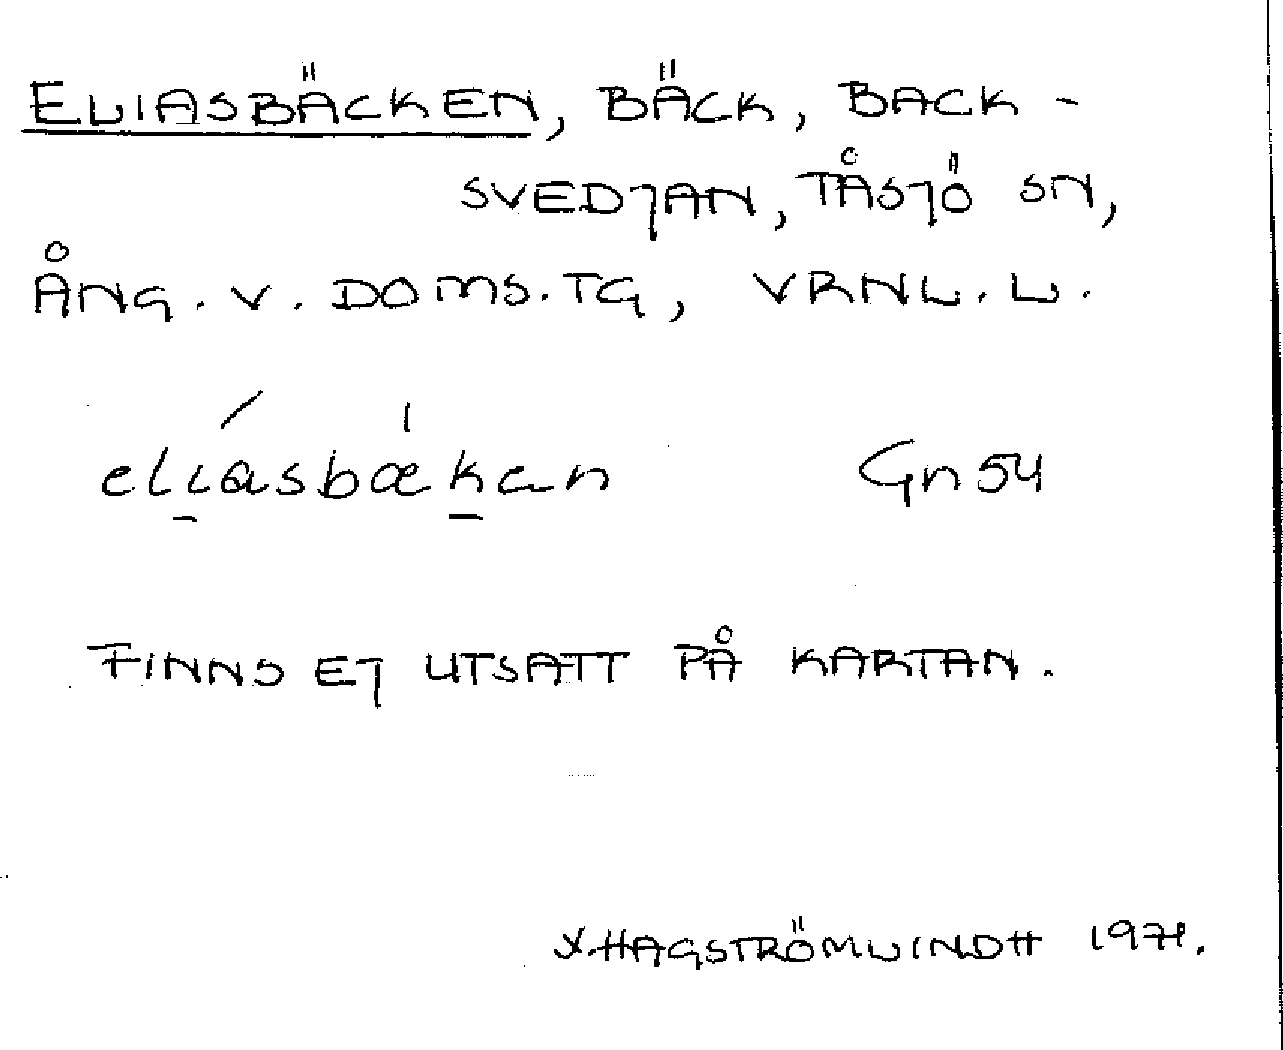 ELIASBÄCKEN, BÄCK, BACK-
SVEDJAN, TÅSJÖ SN,
ÅNG. V. DOMS. TG, VRNL. L.
eliasbækan Gn 54
FINNS EJ UTSATT PÅ KARTAN.
HAGSTRÖM LINDH 1971.